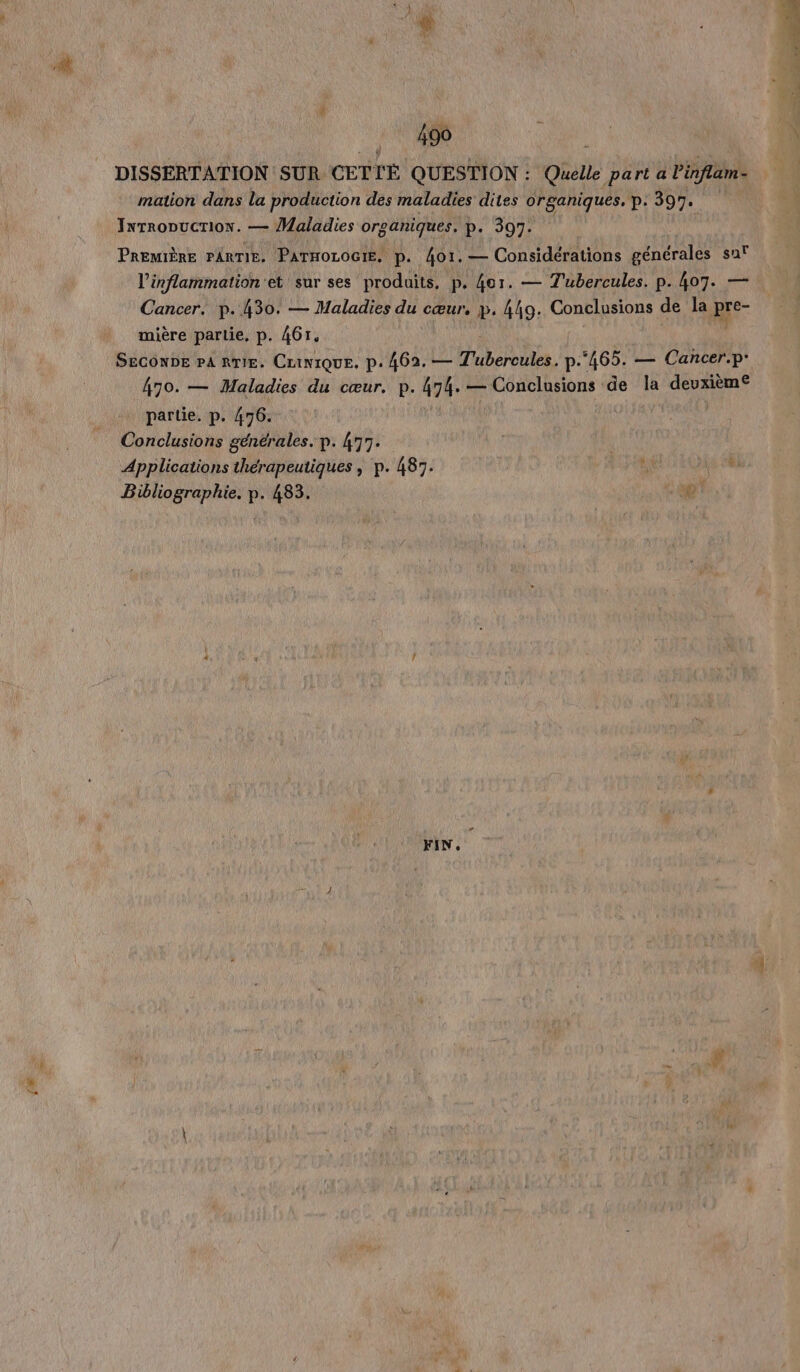 490
DISSERTATION SUR CETTE QUESTION : Quelle part a l'inflam-
mation dans la production des maladies dites organiques. p. 397.
INTRODUCTION. — Maladies organiques. p. 397.
PREMIÈRE PARTIE. PATHOLOGIE. p. 401. — Considérations générales sur
l'inflammation et sur ses produits. p. 401. — Tubercules. p. 407. —
Cancer. p. 430. — Maladies du cœur. p. 449. Conclusions de la pre-
mière partie. p. 461.
SECONDE PARTIE. CLINIQUE. p. 462. — Tubercules. p. 465. — Cancer. p.
470. — Maladies du cœur. p. 474. — Conclusions de la deuxième
partie. p. 476.
Conclusions générales. p. 477.
Applications thérapeutiques, p. 487.
Bibliographie. p. 483.
FIN.